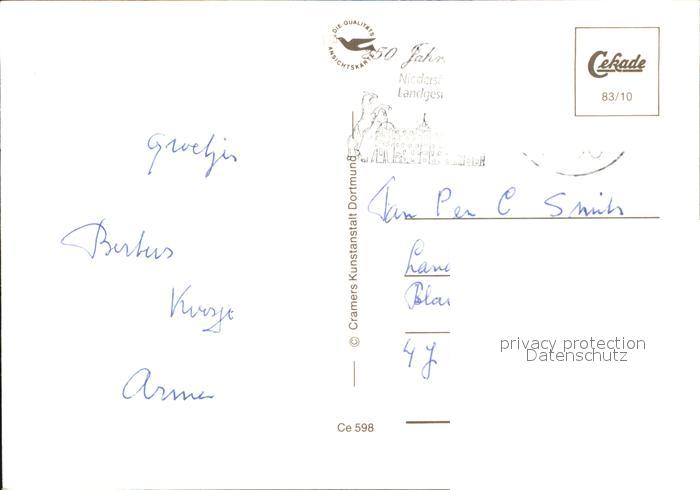 Groetjes
Bertus
Armer
DIE QUALITÄTS
ANSICHTSKARTE
250 Jahr
Niedersä
Landges
Cekade
83/10
© Cramers Kunstanstalt Dortmund
Jan Pen C Smits
Lana
Blar
4 J
privacy protection
Datenschutz
Ce 598